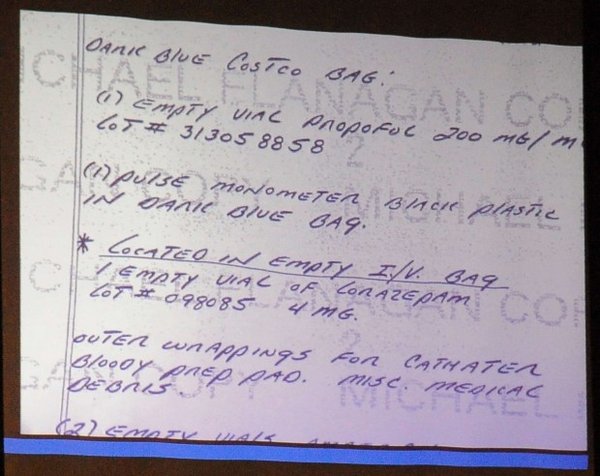 DARK BLUE COSTCO BAG:
(1) EMPTY VIAL PROPOFUL 200 MG/M
LOT # 313058858
(1) PULSE MONOMETER BLACK PLASTIC
IN DARK BLUE BAG.
* LOCATED IN EMPTY I/V. BAG
1 EMPTY VIAL OF LORAZEPAM
LOT # 098085 4 MG.
OUTER WRAPPINGS FOR CATHATER
BLOODY PREP PAD. MISC. MEDICAL
DEBRIS
(2) EMPTY VIALS
ICHAEL FLANAGAN CO
2
GAN COPY MICHAEL
C HAEL FLANAGAN CO
2
GAN COPY MICHAEL